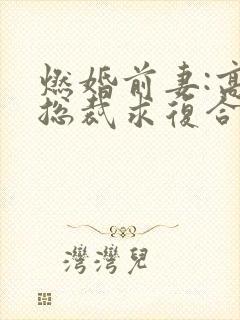 燃婚前妻:高
總裁求復合
灣灣兒